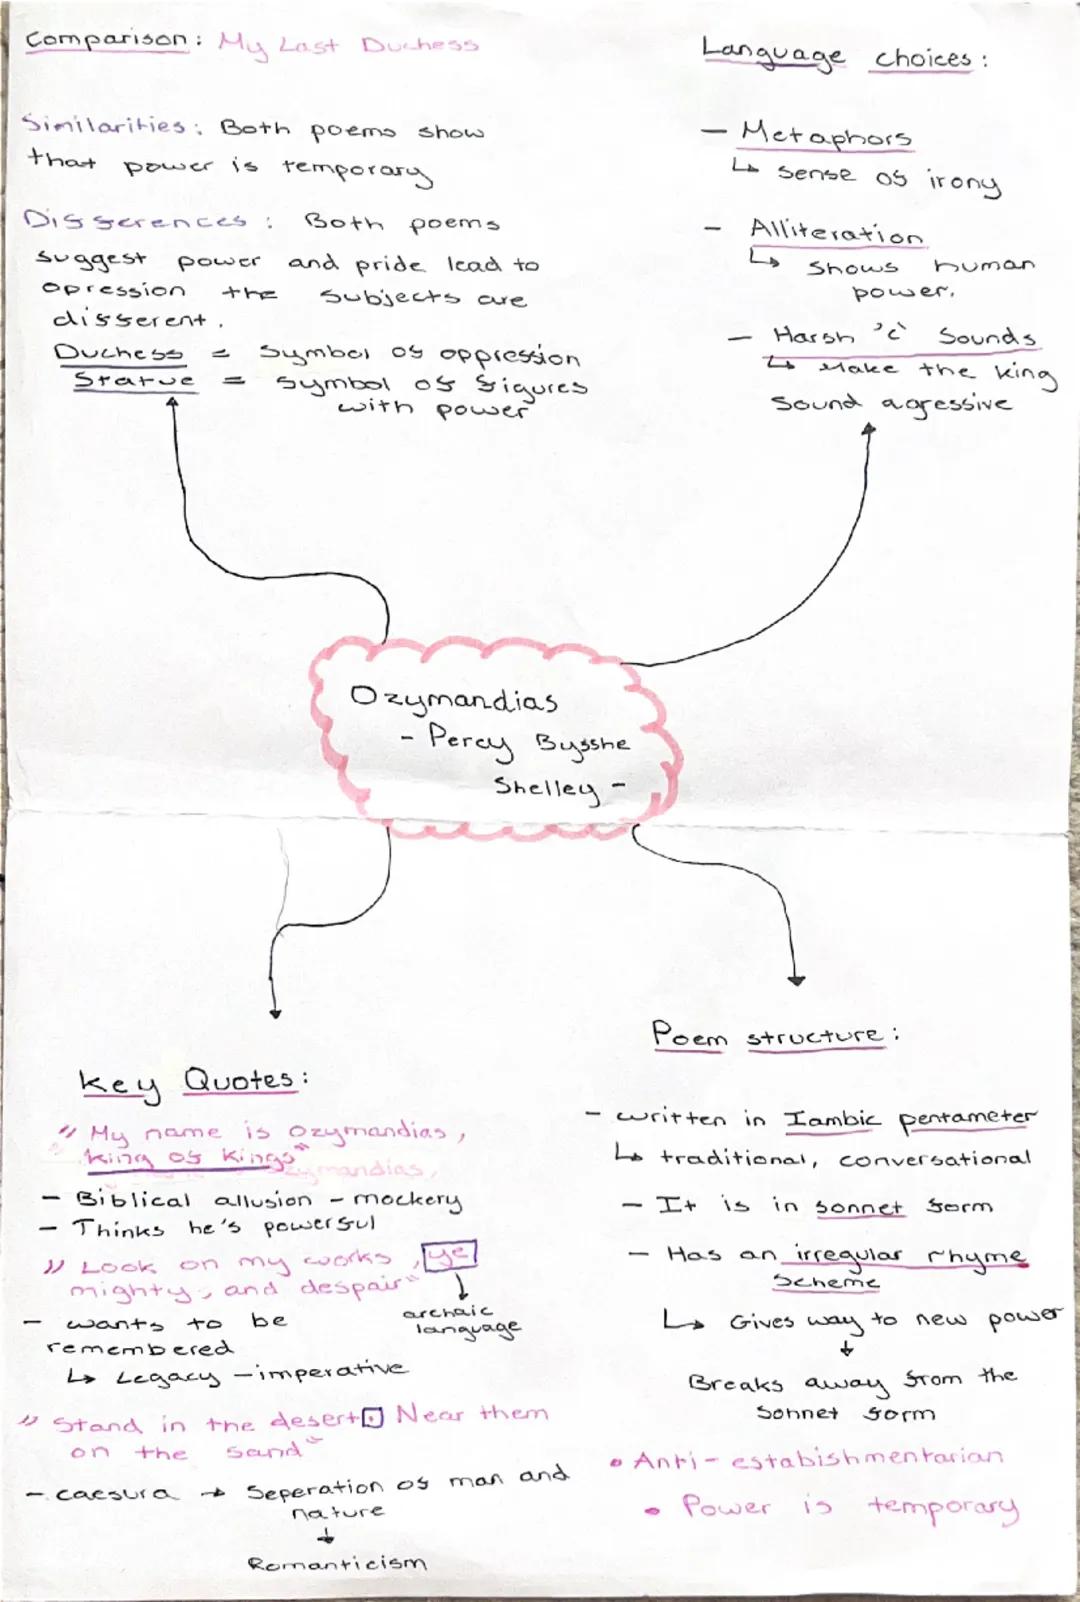 Comparison: My Last Duchess
Similarities: Both poems show
that power is temporary
Differences: Both poems
suggest power and pride lead to
opression the subjects are
different.
Duchess = Symbol of oppression
Statue = symbol of figures
with power
Language choices:
- Metaphors
↳ sense of irony
- Alliteration
↳ shows human
power.
- Harsh 'c' Sounds
↳ Make the king
Sound agressive
Ozymandias
- Percy Bysshe
Shelley -
Key Quotes:
"My name is Ozymandias,
king of kings"
- Biblical allusion - mockery
- Thinks he's powerful
"Look on my works, ye
mighty, and despair"
archaic
language
- wants to be
remembered
↳ Legacy - imperative
"Stand in the desert. Near them
on the sand"
- caesura → Seperation of man and
nature
↓
Romanticism
Poem structure:
- written in Iambic pentameter
↳ traditional, conversational
- It is in sonnet form
- Has an irregular rhyme
scheme
↳ Gives way to new power
↓
Breaks away from the
sonnet form
• Anti-estabishmentarian
• Power is temporary